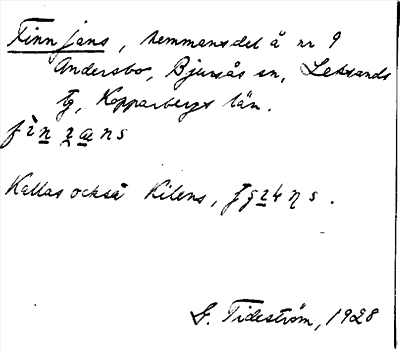 Finn jans, hemmansdel å nr 9
Andersbo, Bjursås sn, Leksands
tg, Kopparbergs län.
Kallas också Kilens,
G. Tideström, 1928